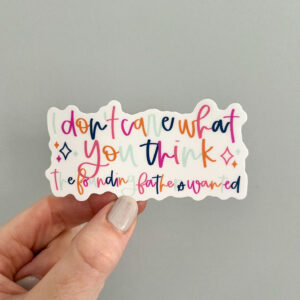 I don't care what
you think
the founding fathers wanted